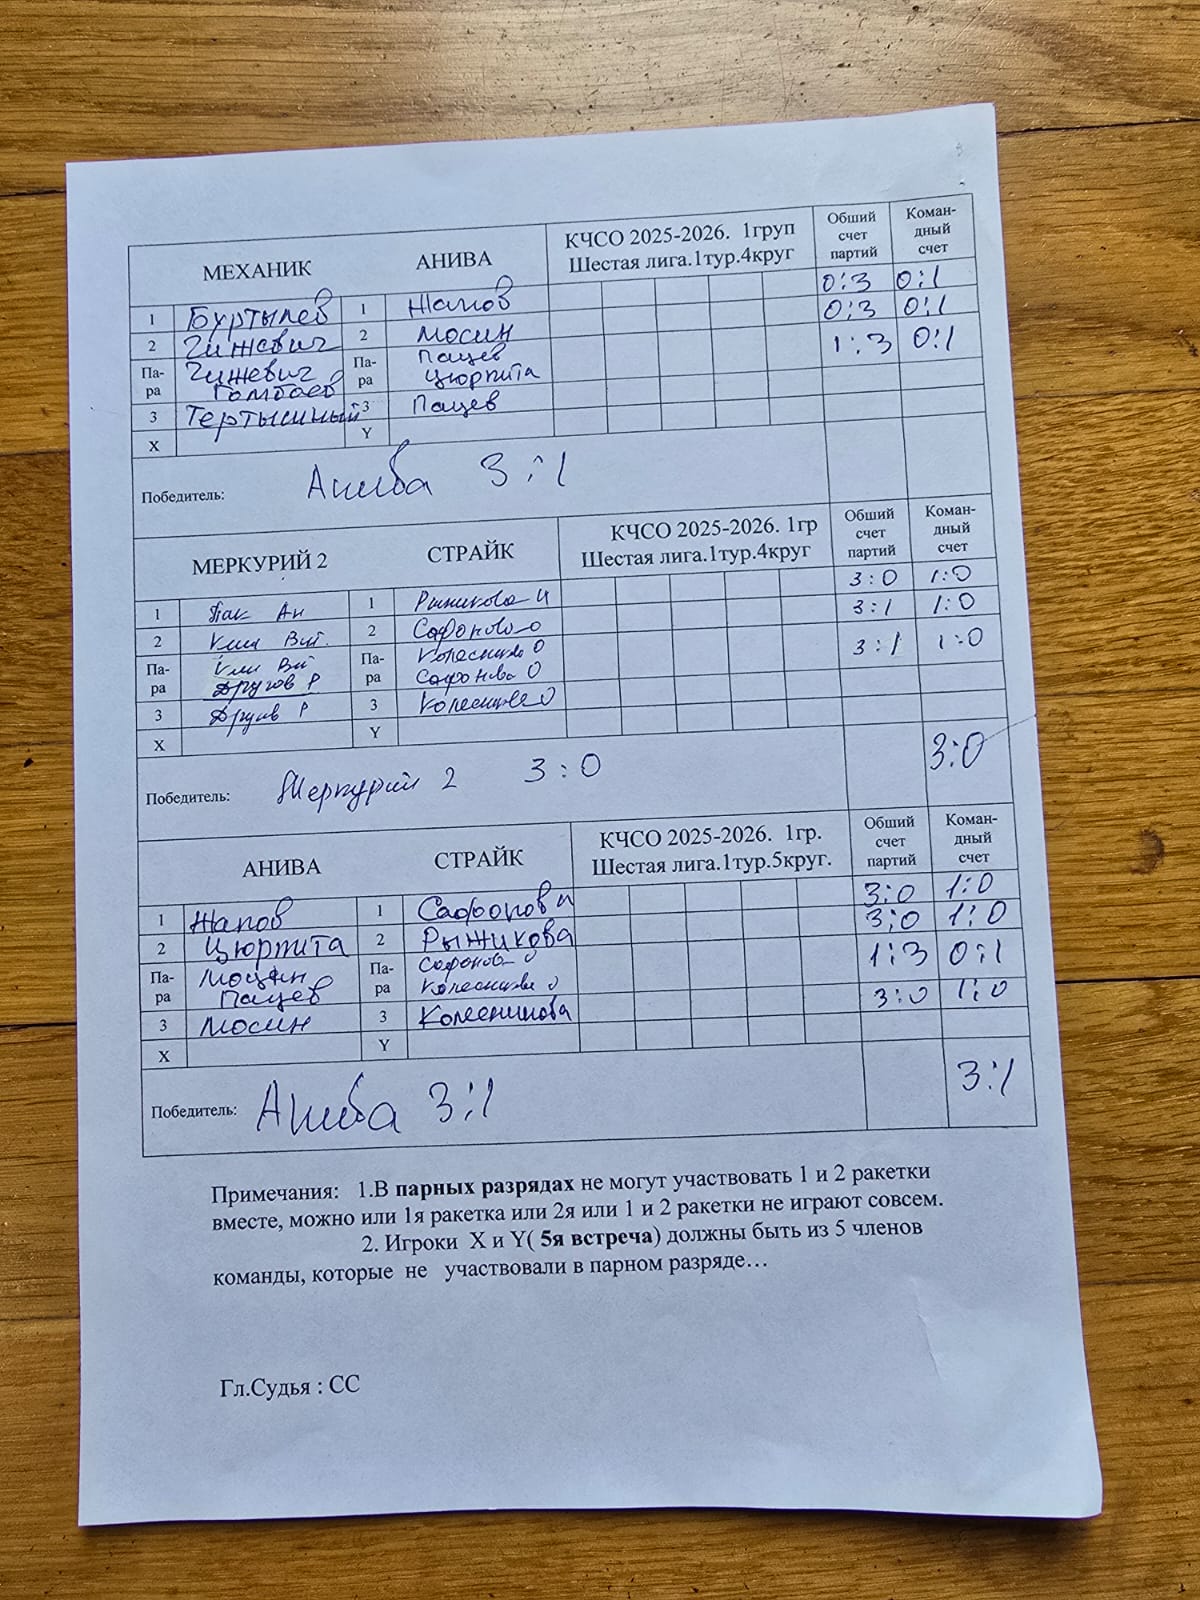 МЕХАНИК АНИВА КЧСО 2025-2026. 1груп Обший Коман-
Шестая лига.1тур.4круг счет дный
партий счет
1 Буртылев 1 Жапов 0:3 0:1
2 Чижевич 2 Мосин 0:3 0:1
Па- Чижевич Па- Пацев 1:3 0:1
ра Гомбоев ра Цюрпита
3 Тертышный 3 Пацев
X Y
Победитель: Анива 3:1
МЕРКУРИЙ 2 СТРАЙК КЧСО 2025-2026. 1гр Обший Коман-
Шестая лига.1тур.4круг счет дный
партий счет
1 Пак Ан 1 Рыжикова И 3:0 1:0
2 Ким Вит. 2 Сафонова О 3:1 1:0
Па- Ким Вит Па- Колесникова О 3:1 1:0
ра Другов Р ра Сафонова О
3 Другов Р 3 Колесникова О
X Y
3:0
Победитель: Меркурий 2 3:0
АНИВА СТРАЙК КЧСО 2025-2026. 1гр. Обший Коман-
Шестая лига.1тур.5круг. счет дный
партий счет
1 Жапов 1 Сафонова 3:0 1:0
2 Цюрпита 2 Рыжикова 3:0 1:0
Па- Мосин Па- Сафонова О 1:3 0:1
ра Пацев ра Колесникова О
3 Мосин 3 Колесникова 3:0 1:0
X Y
Победитель: Анива 3:1 3:1
Примечания: 1.В парных разрядах не могут участвовать 1 и 2 ракетки
вместе, можно или 1я ракетка или 2я или 1 и 2 ракетки не играют совсем.
2. Игроки X и Y( 5я встреча) должны быть из 5 членов
команды, которые не участвовали в парном разряде…
Гл.Судья : СС